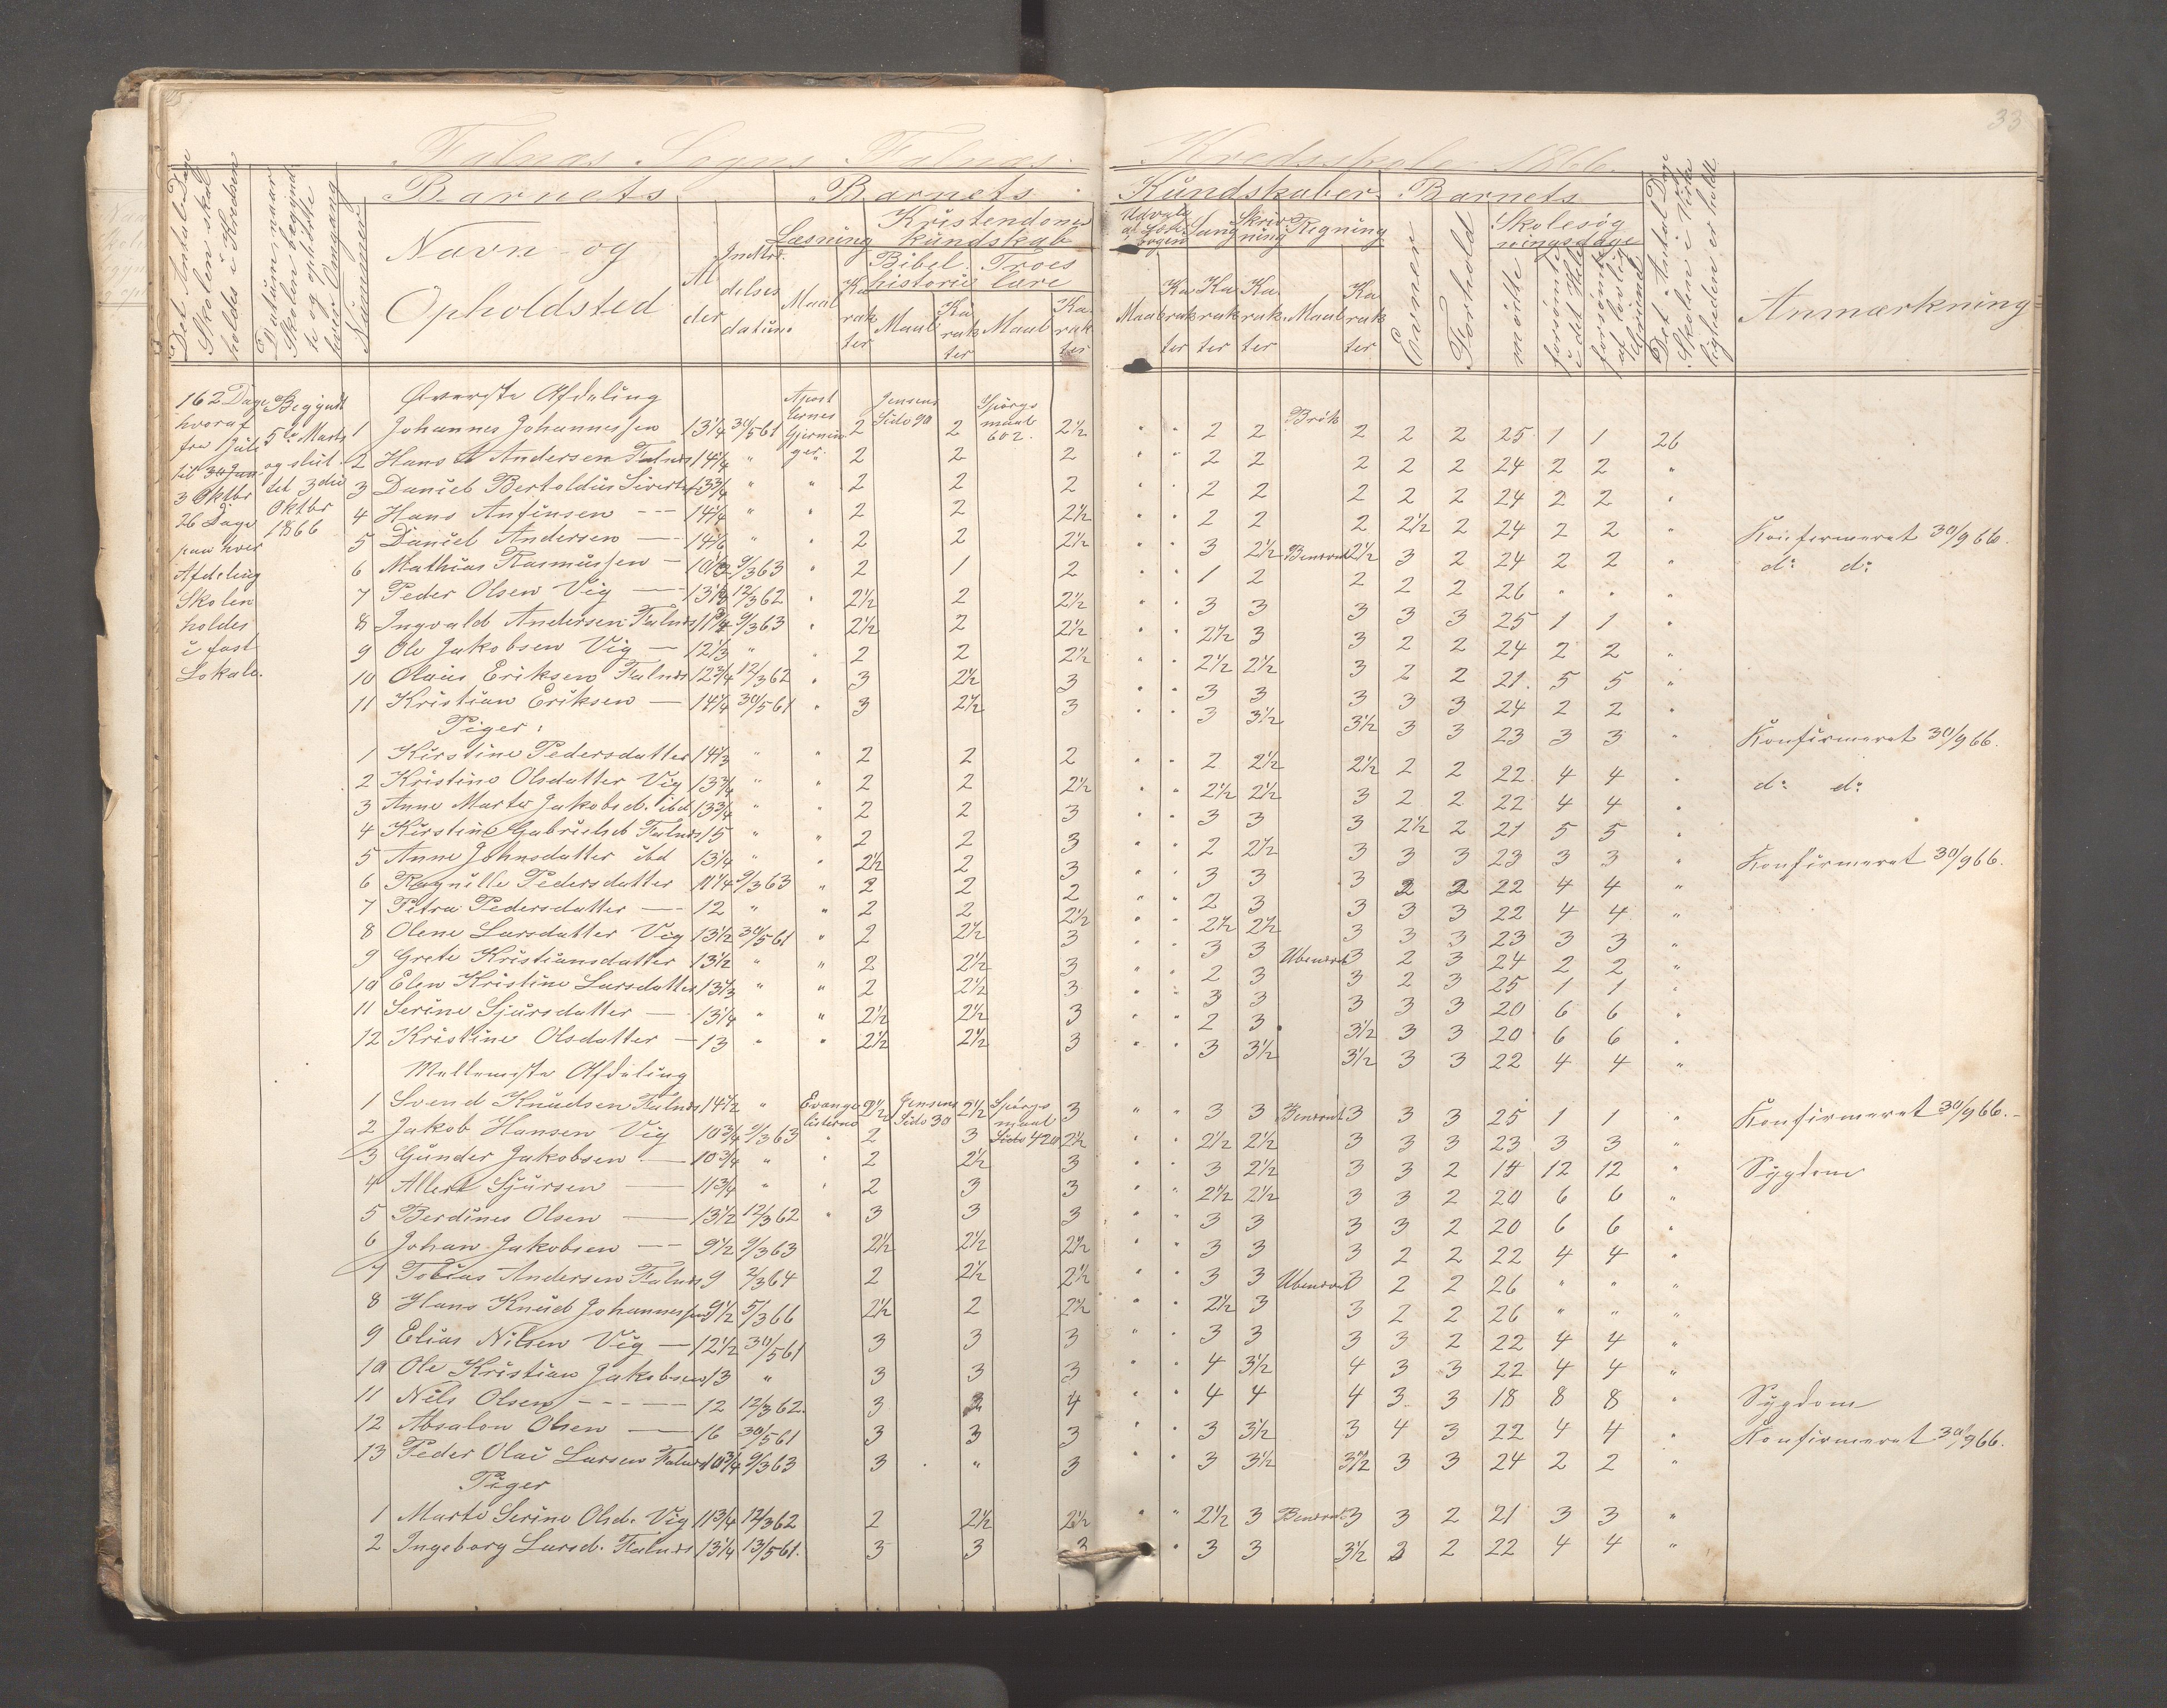 33
Falnæs Sogns Falnæs Kredsskole 1866.
Det Antal Dage Skolen skal holdes i Kredsen
Datum naar Skolen begyndte og ophørte hver Omgang
Nummer
Barnets
Navn og Opholdsted
Alder
Indtrædelses datum
Barnets Kundskaber
Læsning
Maal
Karakter
Kristendoms kundskab
Bibel historie
Maal
Karakter
Troes lære
Maal
Karakter
Udvalg af Læsebogen
Maal
Karakter
Sang
Karakter
Skrivning
Karakter
Regning
Maal
Karakter
Barnets
Evner
Forhold
Skolesøgningsdage
mødte
forsømte i det Hele
forsømte af lovlig
Det Antal Dage Skolen i Virkeligheden er holdt
Anmærkning
162 Dage
hvoraf
fra 1 Juli
til
3 Oktbr
26 Dage
paa hver
Afdeling
Skolen
holdes
i fast
Lokale.
Begyndt
5te Marts
og slut
tet 3die
Oktbr
1866
Øverste Afdeling
Apostlernes Gjerninger
Jensens Side 90
Spørgsmaal 602.
Brøk
1 Johannes Johannessen 13 1/4 30/5 61 2 2 2 1/2 " " 2 2 2 2 2 25 1 1 26
2 Hans A Andersen Falnæs 14 1/4 " " 2 2 2 " " 2 2 2 2 2 24 2 2 "
3 Daniel Bertoldus Sivertsen 13 3/4 " " 2 2 2 " " 2 2 2 2 2 24 2 2
4 Hans Anfinsen --- 14 1/4 " " 2 2 2 1/2 " " 2 2 2 2 1/2 2 24 2 2 " Konfirmeret 30/9 66.
5 Daniel Andersen — 14 1/6 " " 2 2 2 1/2 " " 3 2 1/2 Benævnt 2 1/2 3 2 24 2 2 " do do
6 Mathias Rasmussen — 10 1/2 9/3 63 " 2 1 2 " " 1 2 2 2 2 26 " " "
7 Peder Olsen Vig — 13 1/3 12/3 62 " 2 1/2 2 2 1/2 " " 3 3 3 3 3 25 1 1 "
8 Ingvald Andersen Falnæs 11 3/4 9/3 63 " 2 1/2 2 2 1/2 " " 2 1/2 3 3 2 2 24 2 2 "
9 Ole Jakobsen Vig — 12 1/3 " " 2 2 2 1/2 " " 2 1/2 2 1/2 3 2 2 21 5 5 "
10 Olaus Eriksen Falnæs 12 3/4 12/3 62 " 3 2 1/2 3 " " 3 3 3 3 3 24 2 2 "
11 Kristian Eriksen — 14 1/4 30/5 61 " 3 2 1/2 3 " " 3 3 1/2 3 1/2 3 3 23 3 3 " Konfirmeret 30/9 66.
Piger:
1 Kirstine Pedersdatter 14 1/3 " " 2 2 2 " " 2 2 1/2 2 1/2 2 2 22 4 4 " do do
2 Kristine Olsdatter Vig 13 3/4 " " 2 2 2 1/2 " " 2 1/2 2 1/2 3 2 2 22 4 4 "
3 Anne Marte Jakobsd. ibd 13 3/4 " " 2 2 3 " " 3 3 3 2 1/2 2 21 5 5 "
4 Kirstine Gabrielsd. Falnæs 15 " " 2 2 3 " " 2 2 1/2 3 3 3 23 3 3 " Konfirmeret 30/9 66.
5 Anne Johnsdatter ibd 13 1/4 " " 2 1/2 2 3 " " 3 3 3 2 2 22 4 4 "
6 Ragnille Pedersdatter 11 1/4 9/3 63 " 2 2 2 " " 2 3 3 3 3 22 4 4 "
7 Petra Pedersdatter — 12 " " 2 2 2 1/2 " " 2 1/2 2 1/2 3 3 3 23 3 3 "
8 Olene Larsdatter Vig 13 1/2 30/5 61 " 2 2 1/2 3 3 3 Ubenævnt 3 2 3 24 2 2 "
9 Grete Kristiansdatter 13 1/2 " " 2 2 1/2 3 " " 2 3 3 2 3 25 1 1 "
10 Elen Kristine Larsdatter 13 1/3 " " 2 2 1/2 3 " " 3 3 3 3 3 20 6 6 "
11 Serine Sjursdatter — 13 1/4 " " 2 1/2 2 1/2 3 " " 2 3 3 1/2 3 3 20 6 6 "
12 Kristine Olsdatter — 13 " " 2 1/2 2 1/2 3 " " 3 3 1/2 3 1/2 3 3 22 4 4 "
Mellemste Afdeling
1 Svend Knudsen Falnæs 14 1/2 " Evangelisterne 2 1/2 Jensens Side 30 2 1/2 Spørgsmaal Side 420 3 " " 3 3 Benævnt 3 3 3 25 1 1 " Konfirmeret 30/9 66.
2 Jakob Hansen Vig 10 3/4 9/3 63 " 2 3 2 1/2 " " 2 1/2 2 1/2 3 3 3 23 3 3 "
3 Gunder Jakobsen — 10 3/4 " " 2 2 1/2 3 3 2 1/2 3 3 2 14 12 12 " Sygdom
4 Allert Sjursen — 11 3/4 " " 2 3 3 " " 2 1/2 2 1/2 3 3 2 20 6 6 "
5 Berdines Olsen — 13 1/2 12/3 62 " 3 3 3 " " 3 3 3 3 2 20 6 6 "
6 Johan Jakobsen — 9 1/2 9/3 63 2 1/2 2 1/2 2 1/2 " " 3 3 3 2 2 22 4 4 "
7 Tobias Andersen Falnæs 9 2/3 64 2 2 1/2 2 1/2 " " 3 3 Ubenævnt 3 2 2 26 " " "
8 Hans Knud Johannessen 9 1/2 5/3 66 2 1/2 2 2 1/2 " " 2 1/2 3 3 2 2 26 " " "
9 Elias Nilsen Vig — 12 1/2 30/5 61 3 3 3 " " 3 3 3 3 2 22 4 4 "
10 Ole Kristian Jakobsen 13 " 3 3 3 " " 4 3 1/2 4 3 3 22 4 4 "
11 Nils Olsen ---- 12 12/3 62. 3 4 " " 4 4 4 3 3 18 8 8 " Sygdom
12 Absalon Olsen — 16 30/5 61 3 3 3 " " 3 3 1/2 3 4 3 22 4 4 " Konfirmeret 30/9 66.
13 Peder Olai Larsen Falnæs 10 3/4 9/3 63 3 " 3 " 3 3 1/2 3 1/2 3 3 24 2 2 "
Piger
1 Marte Serine Olsd. Vig 11 3/4 12/3 62 2 2 1/2 2 1/2 " " 2 1/2 3 Benævnt 3 3 2 21 3 3 "
2 Ingeborg Larsd. Falnæs 13 1/4 13/5 61. 3 3 3 " 3 3 3 1/2 3 2 22 4 4 "